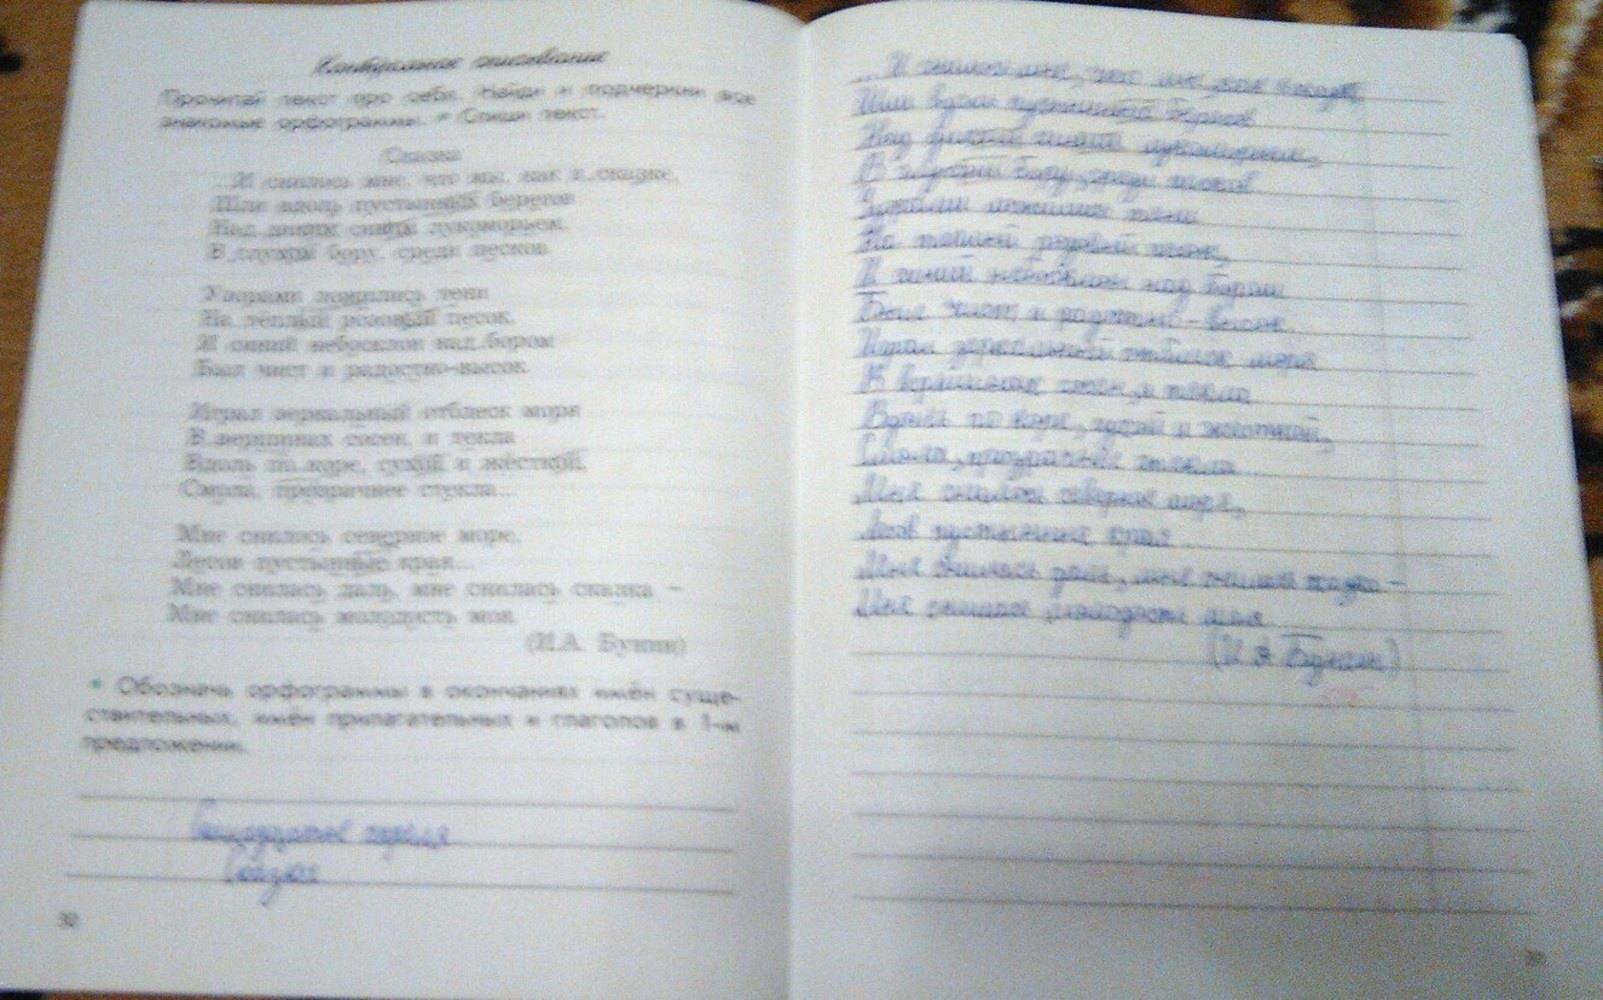 Контрольное списывание
Прочитай текст про себя. Найди и подчеркни все
знакомые орфограммы. Спиши текст.
Сказка
...И снилось мне, что мы, как в сказке,
Шли вдоль пустынных берегов
Над диким синим лукоморьем,
В глухом бору, среди песков.
Узорами ложились тени
На тёплый розовый песок,
И синий небосклон над бором
Был чист и радостно-высок.
Играл зеркальный отблеск моря
В вершинах сосен, и текла
Вдоль по коре, сухой и жёсткой,
Смола, прозрачнее стекла...
Мне снилось северное море,
Лесов пустынные края...
Мне снилась даль, мне снилась сказка –
Мне снилась молодость моя.
(И.А. Бунин)
• Обозначь орфограммы в окончаниях имён суще-
ствительных, имён прилагательных и глаголов в 1-м
предложении.
Сказка
30
...И снилось мне, что мы, как в сказке,
Шли вдоль пустынных берегов
Над диким синим лукоморьем,
В глухом бору, среди песков.
Узорами ложились тени
На тёплый розовый песок,
И синий небосклон над бором
Был чист и радостно-высок.
Играл зеркальный отблеск моря
В вершинах сосен, и текла
Вдоль по коре, сухой и жёсткой,
Смола, прозрачнее стекла...
Мне снилось северное море,
Лесов пустынные края...
Мне снилась даль, мне снилась сказка –
Мне снилась молодость моя.
(И. А. Бунин)